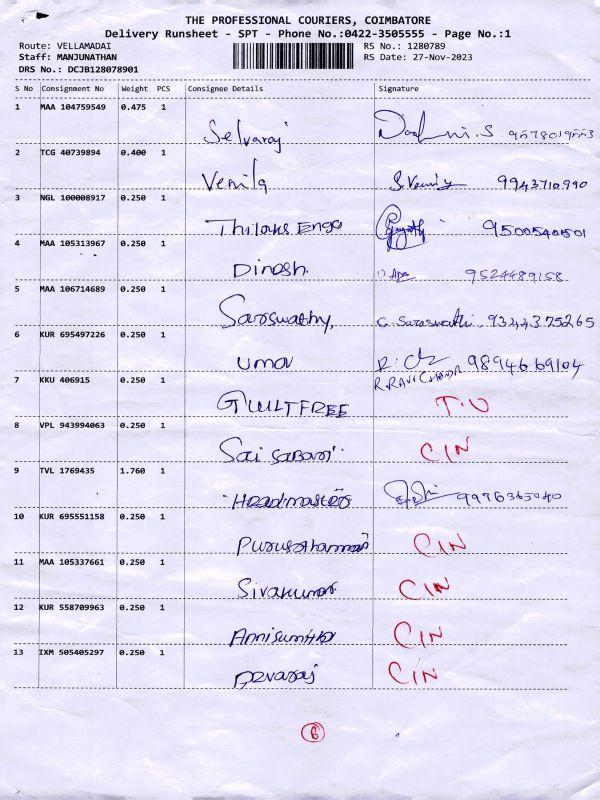 THE PROFESSIONAL COURIERS, COIMBATORE
Delivery Runsheet - SPT - Phone No.:0422-3505555 - Page No.:1
Route: VELLAMADAI RS No.: 1280789
Staff: MANJUNATHAN RS Date: 27-Nov-2023
DRS No.: DCJB128078901
S No Consignment No Weight PCS Consignee Details Signature
1 MAA 104759549 0.475 1
Selvaraj
2 TCG 40739894 0.400 1
Venila S. Venily 9943710990
3 NGL 100008917 0.250 1
Thilaks Engg 95005401501
4 MAA 105313967 0.250 1
Dinesh. 9524489158
5 MAA 106714689 0.250 1
Saroswathy, G. Saraswathi. 9344375265
6 KUR 695497226 0.250 1
uma 9894669104
7 KKU 406915 0.250 1 R.RAVICHANDR
GUILTFREE T.U
8 VPL 943994063 0.250 1
Sai Sabari CIN
9 TVL 1769435 1.760 1
Headmaster 9976365040
10 KUR 695551158 0.250 1
CIN
11 MAA 105337661 0.250 1
Sivakumar CIN
12 KUR 558709963 0.250 1
CIN
13 IXM 505405297 0.250 1
CIN
6